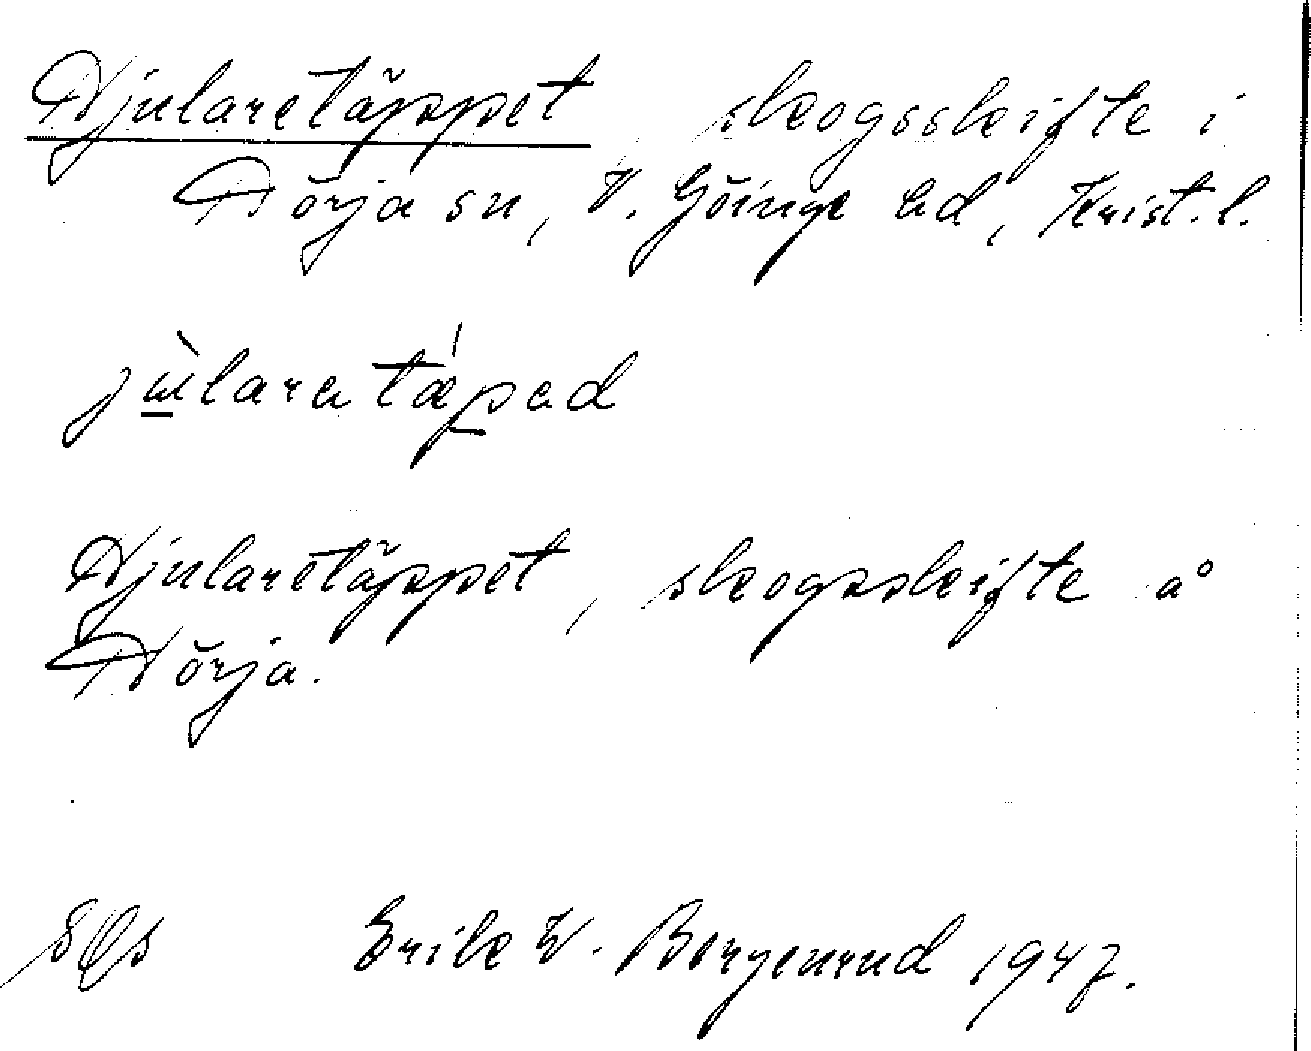 Hjularetäppet, skogsskifte i
Nörja sn, V. Göinge hd, Krist. l.
jùlaretǽped
Hjularetäppet, skogsskifte å
Nörja.
Erik W. Borgenrud 1947.